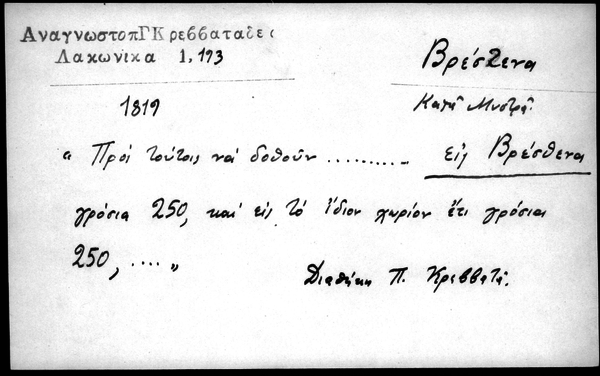 ΑναγνωστοπΓΚρεββαταδες
Λακωνικα 1, 193
Βρέσθενα
1819
Κατή Μυστρᾶ
" Πρὸς τούτοις νά δοθοῦν ............ εἰς Βρέσθενα
γρόσια 250, καί εἰς τό ἴδιον χωρίον ἔτι γρόσια
250, ....."
Διαθήκη Π. Κρεββατᾶ.